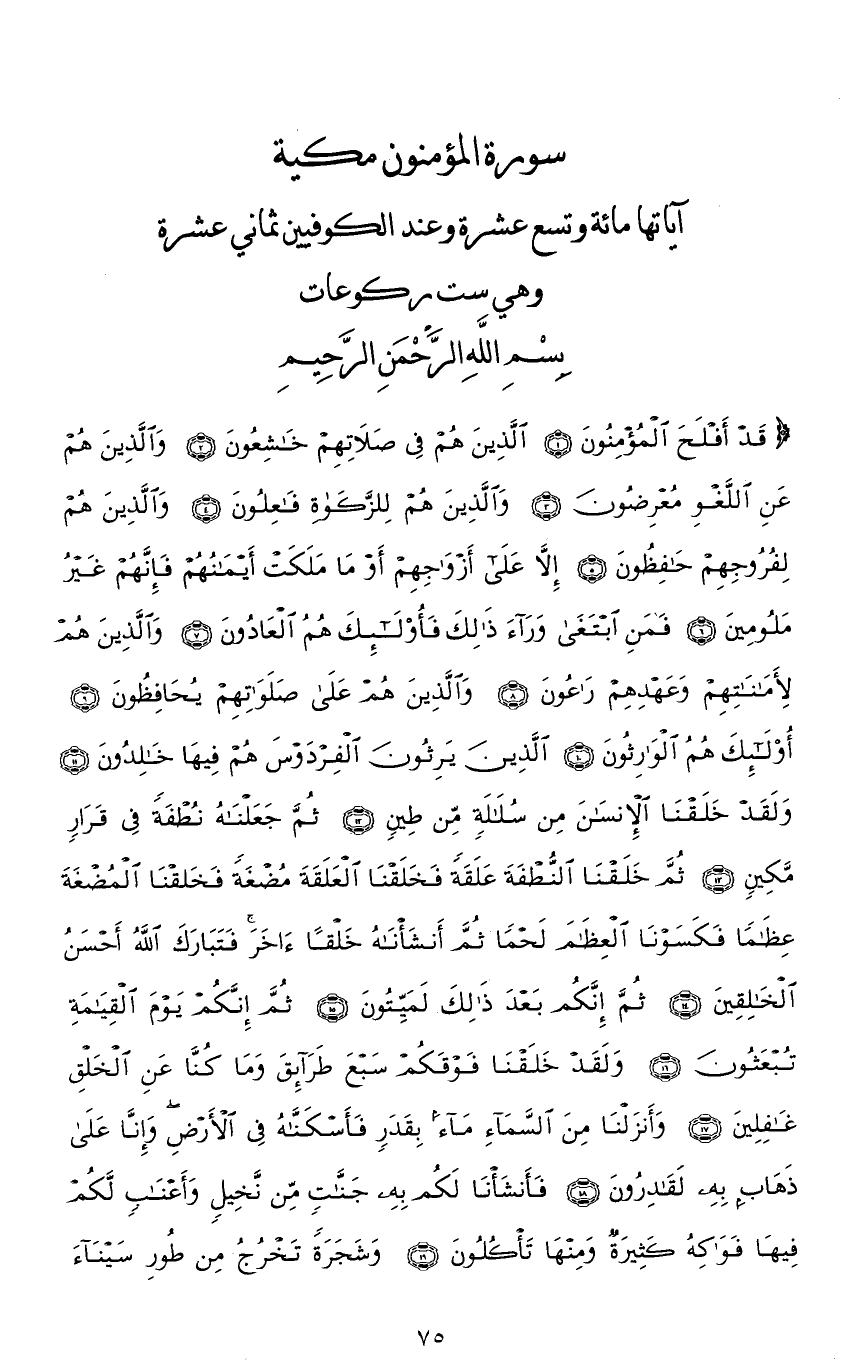 سورة المؤمنون مكية
آياتها مائة وتسع عشرة وعند الكوفيين ثماني عشرة
وهي ست ركوعات
بِسْمِ اللَّهِ الرَّحْمَنِ الرَّحِيمِ
﴿ قَدْ أَفْلَحَ ٱلْمُؤْمِنُونَ ﴿١﴾ ٱلَّذِينَ هُمْ فِى صَلَاتِهِمْ خَـٰشِعُونَ ﴿٢﴾ وَٱلَّذِينَ هُمْ
عَنِ ٱللَّغْوِ مُعْرِضُونَ ﴿٣﴾ وَٱلَّذِينَ هُمْ لِلزَّكَوٰةِ فَـٰعِلُونَ ﴿٤﴾ وَٱلَّذِينَ هُمْ
لِفُرُوجِهِمْ حَـٰفِظُونَ ﴿٥﴾ إِلَّا عَلَىٰٓ أَزْوَٰجِهِمْ أَوْ مَا مَلَكَتْ أَيْمَـٰنُهُمْ فَإِنَّهُمْ غَيْرُ
مَلُومِينَ ﴿٦﴾ فَمَنِ ٱبْتَغَىٰ وَرَآءَ ذَٰلِكَ فَأُو۟لَـٰٓئِكَ هُمُ ٱلْعَادُونَ ﴿٧﴾ وَٱلَّذِينَ هُمْ
لِأَمَـٰنَـٰتِهِمْ وَعَهْدِهِمْ رَٰعُونَ ﴿٨﴾ وَٱلَّذِينَ هُمْ عَلَىٰ صَلَوَٰتِهِمْ يُحَافِظُونَ ﴿٩﴾
أُو۟لَـٰٓئِكَ هُمُ ٱلْوَٰرِثُونَ ﴿١٠﴾ ٱلَّذِينَ يَرِثُونَ ٱلْفِرْدَوْسَ هُمْ فِيهَا خَـٰلِدُونَ ﴿١١﴾
وَلَقَدْ خَلَقْنَا ٱلْإِنسَـٰنَ مِن سُلَـٰلَةٍ مِّن طِينٍ ﴿١٢﴾ ثُمَّ جَعَلْنَـٰهُ نُطْفَةً فِى قَرَارٍ
مَّكِينٍ ﴿١٣﴾ ثُمَّ خَلَقْنَا ٱلنُّطْفَةَ عَلَقَةً فَخَلَقْنَا ٱلْعَلَقَةَ مُضْغَةً فَخَلَقْنَا ٱلْمُضْغَةَ
عِظَـٰمًا فَكَسَوْنَا ٱلْعِظَـٰمَ لَحْمًا ثُمَّ أَنشَأْنَـٰهُ خَلْقًا ءَاخَرَ ۚ فَتَبَارَكَ ٱللَّهُ أَحْسَنُ
ٱلْخَـٰلِقِينَ ﴿١٤﴾ ثُمَّ إِنَّكُم بَعْدَ ذَٰلِكَ لَمَيِّتُونَ ﴿١٥﴾ ثُمَّ إِنَّكُمْ يَوْمَ ٱلْقِيَـٰمَةِ
تُبْعَثُونَ ﴿١٦﴾ وَلَقَدْ خَلَقْنَا فَوْقَكُمْ سَبْعَ طَرَآئِقَ وَمَا كُنَّا عَنِ ٱلْخَلْقِ
غَـٰفِلِينَ ﴿١٧﴾ وَأَنزَلْنَا مِنَ ٱلسَّمَآءِ مَآءً بِقَدَرٍ فَأَسْكَنَّـٰهُ فِى ٱلْأَرْضِ ۖ وَإِنَّا عَلَىٰ
ذَهَابٍ بِهِۦ لَقَـٰدِرُونَ ﴿١٨﴾ فَأَنشَأْنَا لَكُم بِهِۦ جَنَّـٰتٍ مِّن نَّخِيلٍ وَأَعْنَـٰبٍ لَّكُمْ
فِيهَا فَوَٰكِهُ كَثِيرَةٌ وَمِنْهَا تَأْكُلُونَ ﴿١٩﴾ وَشَجَرَةً تَخْرُجُ مِن طُورِ سَيْنَآءَ
٧٥